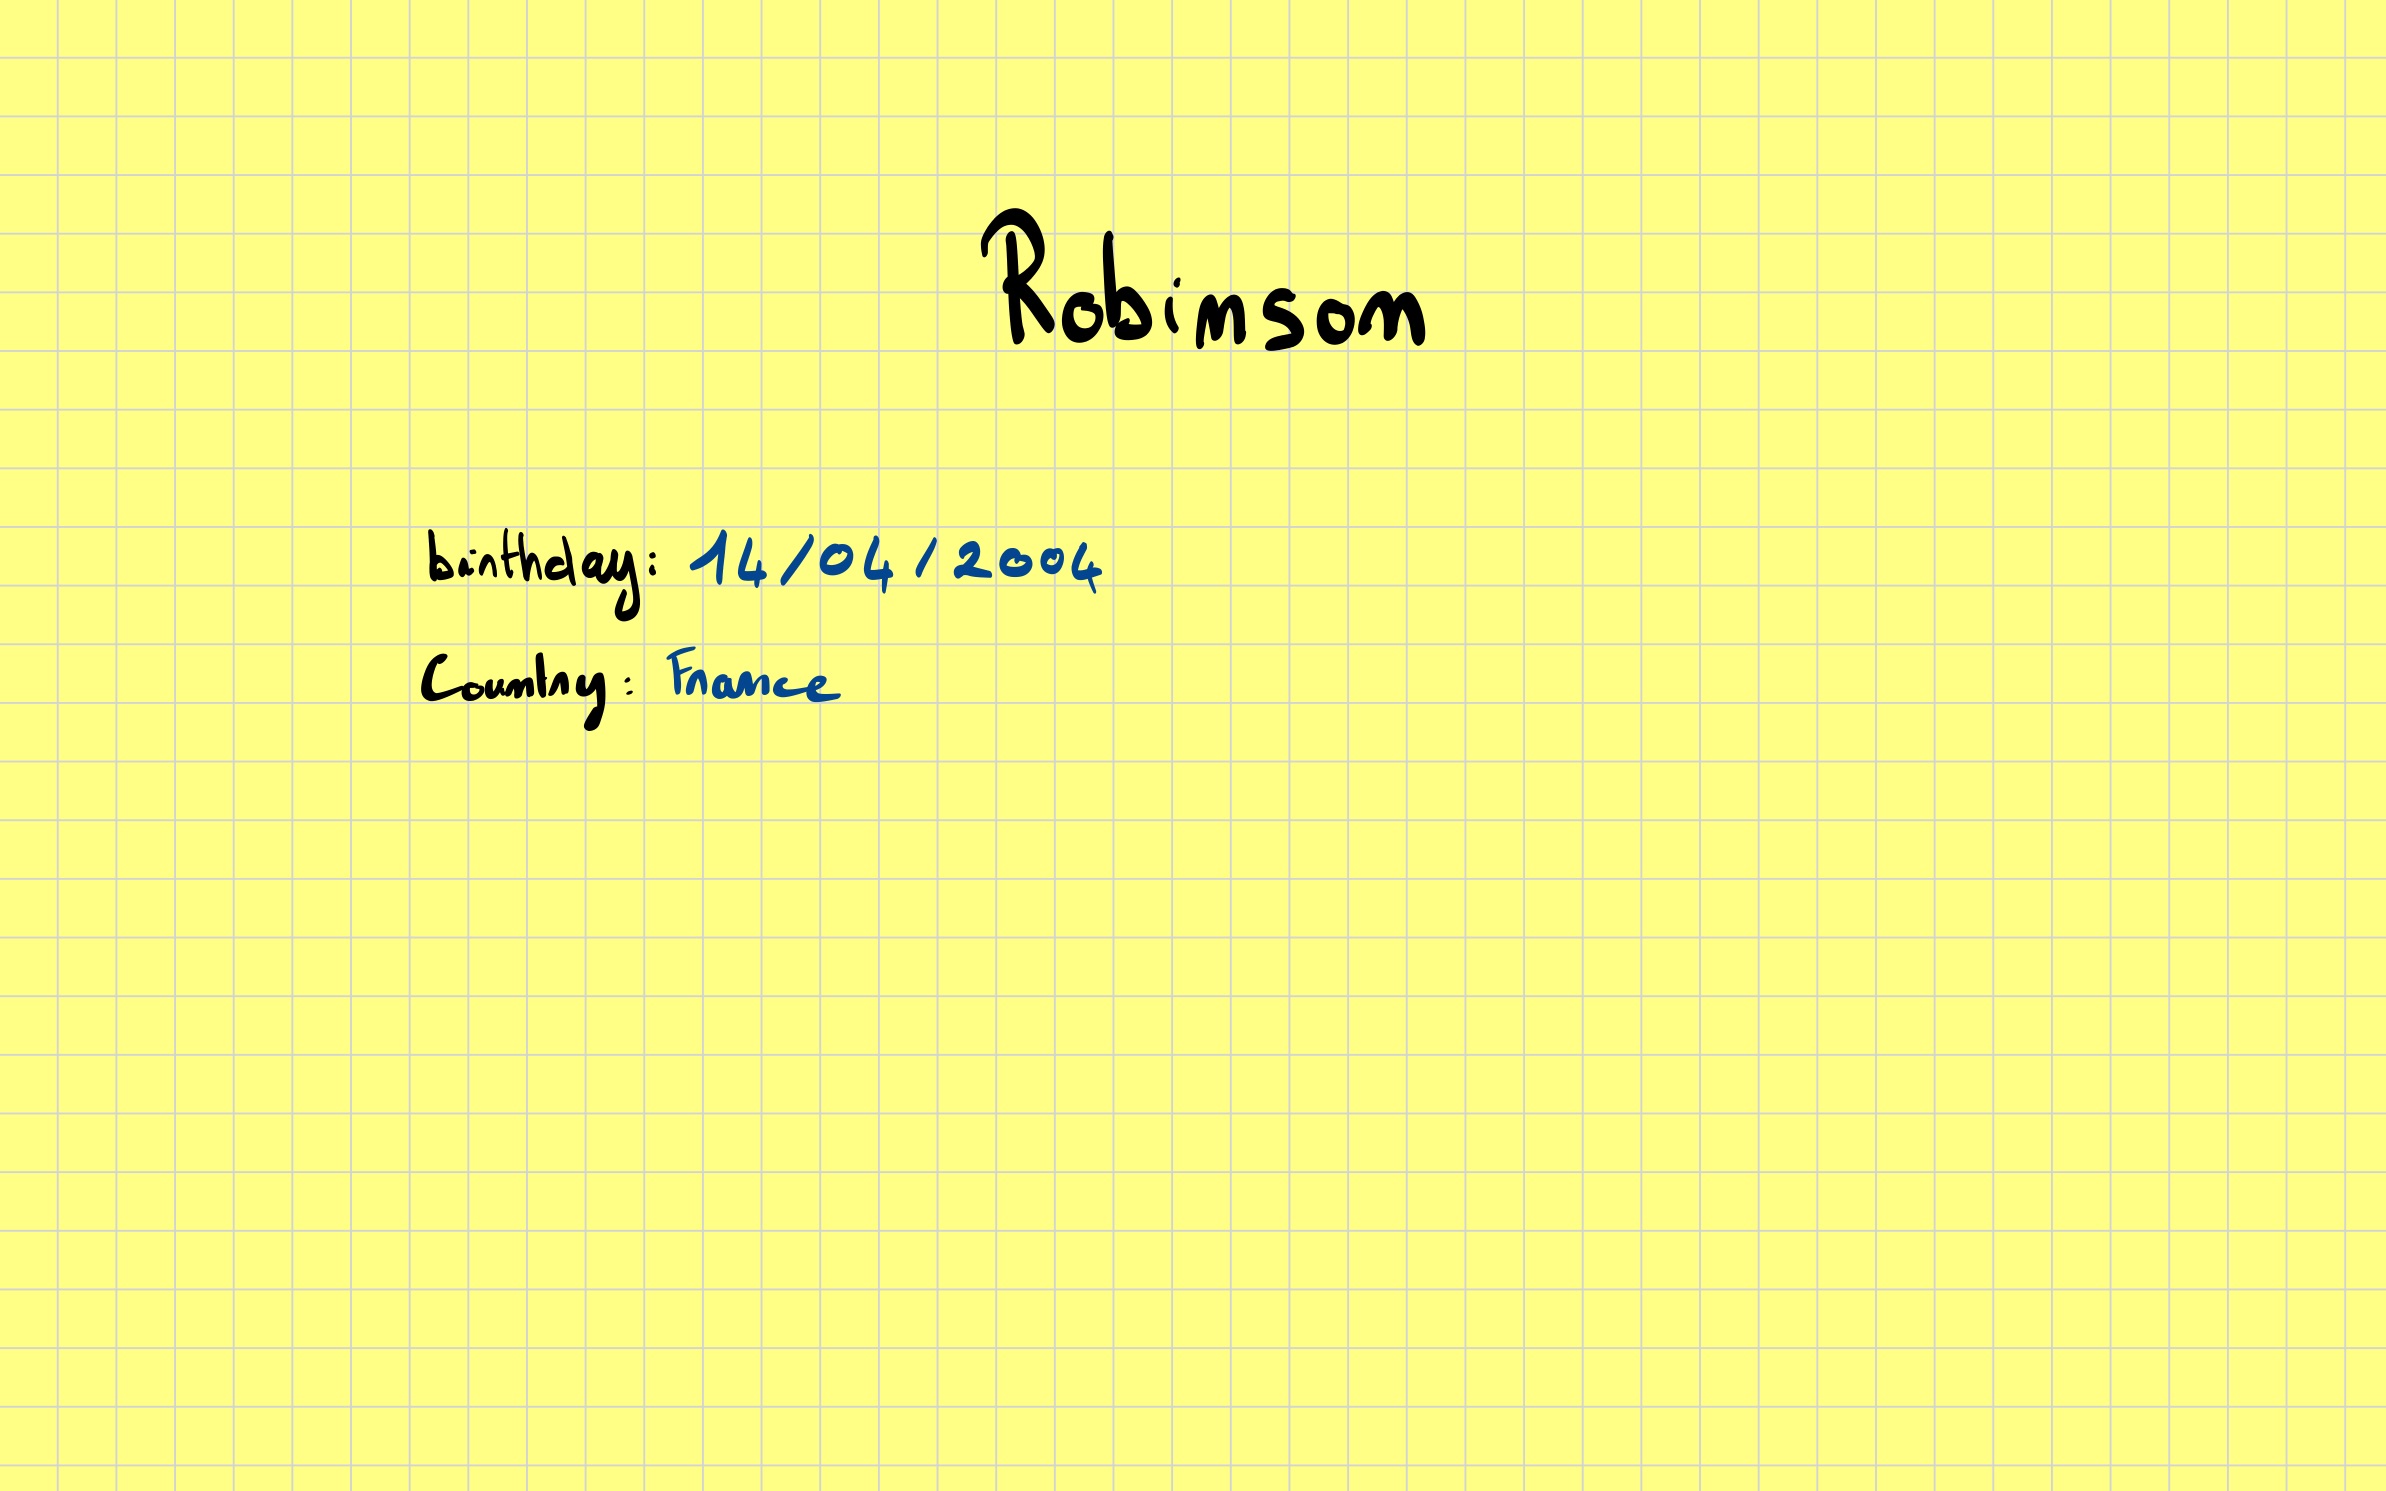 Robinson
birthday: 14/04/2004
Country: France